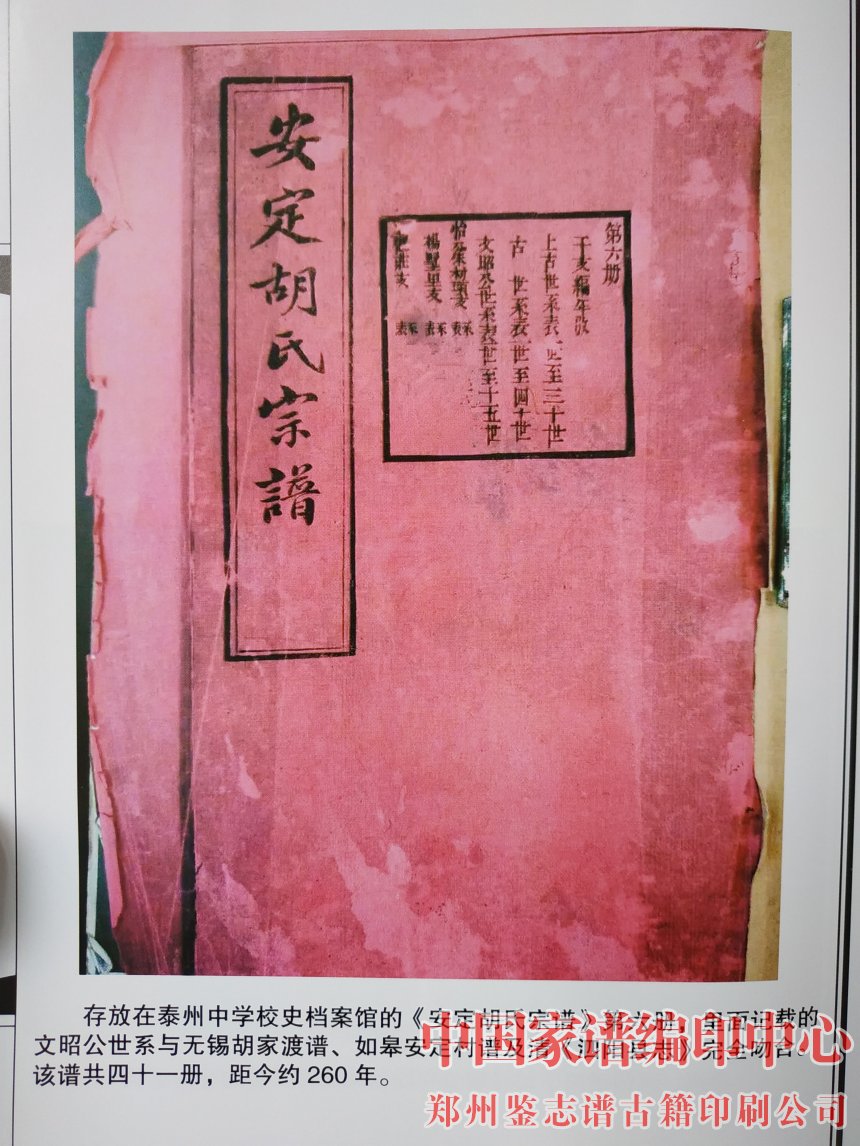 安定胡氏宗譜
第六册
干支編年攷
上古世系表 世至三十世
古 世系表 世至四十世
文昭公世系表 世至十五世
楊墅里支 系表
莊支 系表
存放在泰州中学校史档案馆的《安定胡氏宗谱》第六册，里面记载的
文昭公世系与无锡胡家渡谱、如皋安定村谱及清《泗阳县志》完全吻合。
该谱共四十一册，距今约 260 年。
中国家谱编印中心
郑州鉴志谱古籍印刷公司